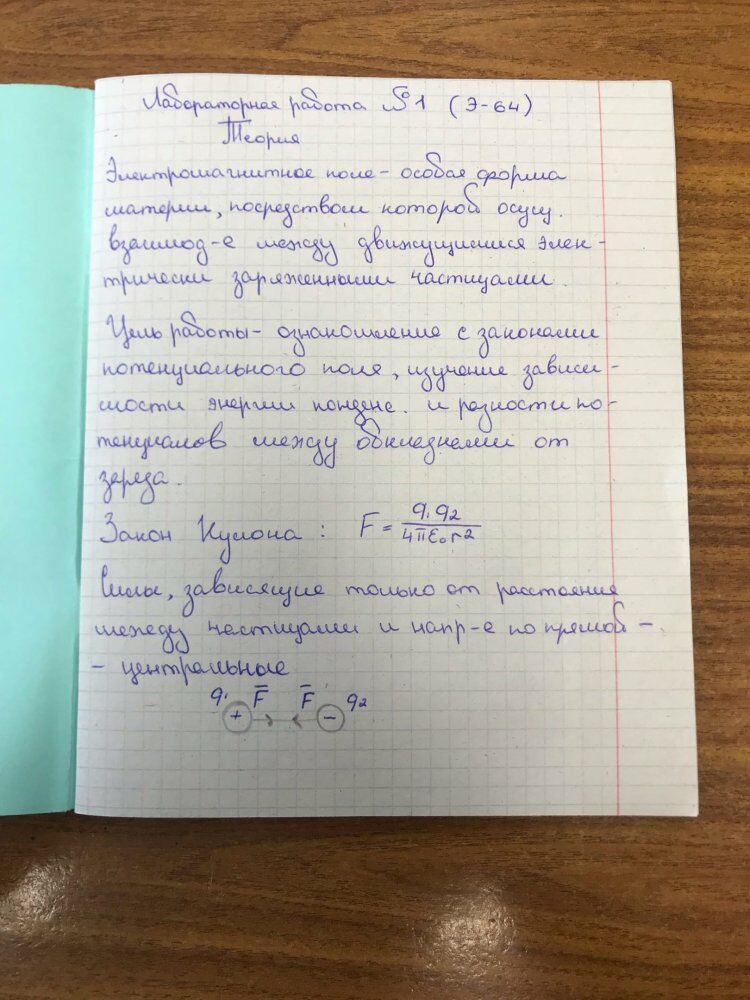 Лабораторная работа №1 (Э-64)
Теория
Электромагнитное поле - особая форма
материи, посредством которой осущ.
взаимод-е между движущимися элек-
трически заряженными частицами.
Цель работы - ознакомление с законами
потенциального поля, изучение зависи-
мости энергии конденс. и разности по-
тенциалов между обкладками от
заряда.
Закон Кулона: F = q₁q₂/4πε₀r²
Силы, зависящие только от расстояния
между частицами и напр-е по прямой -
- центральные
q₁ F̅ F̅ q₂
+ -